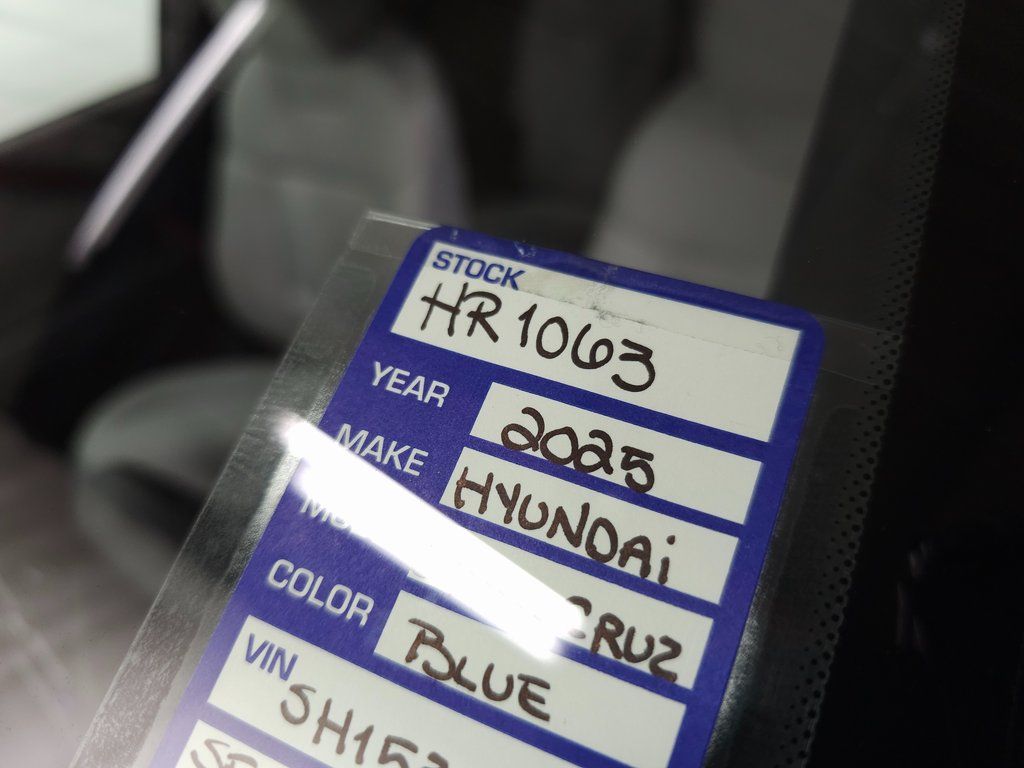 STOCK
HR1063
YEAR 2025
MAKE HYUNDAi
CRUZ
COLOR BLUE
VIN
SH153